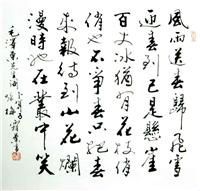 風雨送春歸飛雪
迎春到已是懸崖
百丈冰猶有花枝俏
俏也不爭春只把春
來報待到山花爛
漫時她在叢中笑
毛澤東
詠梅